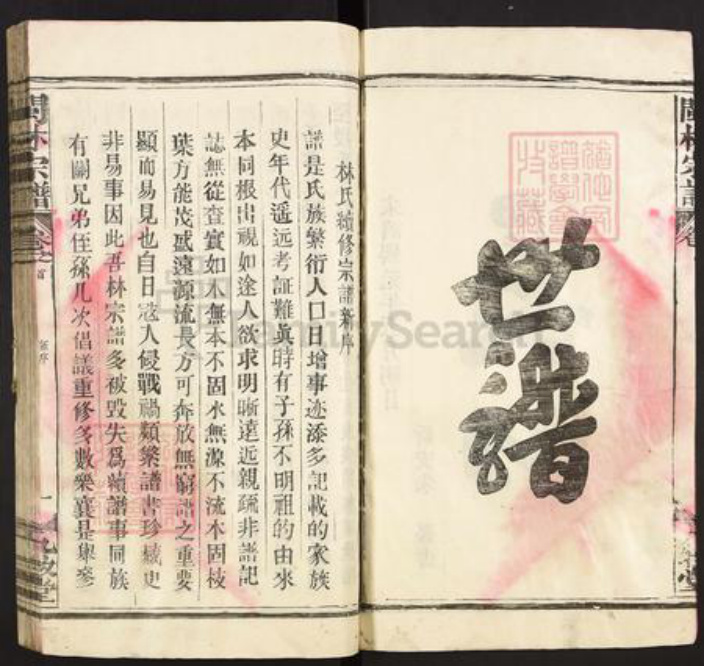 世譜
林氏續修宗譜新序
譜是氏族繁衍人口日增事迹添多記載的家族
史年代遥远考証難眞時有子孫不明祖的由來
本同根出視如途人欲求明晰遠近親疏非譜記
誌無從查實如木無本不固水無源不流本固枝
葉方能茂盛遠源流長方可奔放無窮譜之重要
顯而易見也自日寇入侵戰禍頻繁譜書珍藏史
非易事因此吾林宗譜多被毀失爲續譜事同族
有關兄弟侄孫几次倡議重修多數樂襄是舉參
閩林宗譜
卷之首
新序
一
九牧堂
FamilySearch